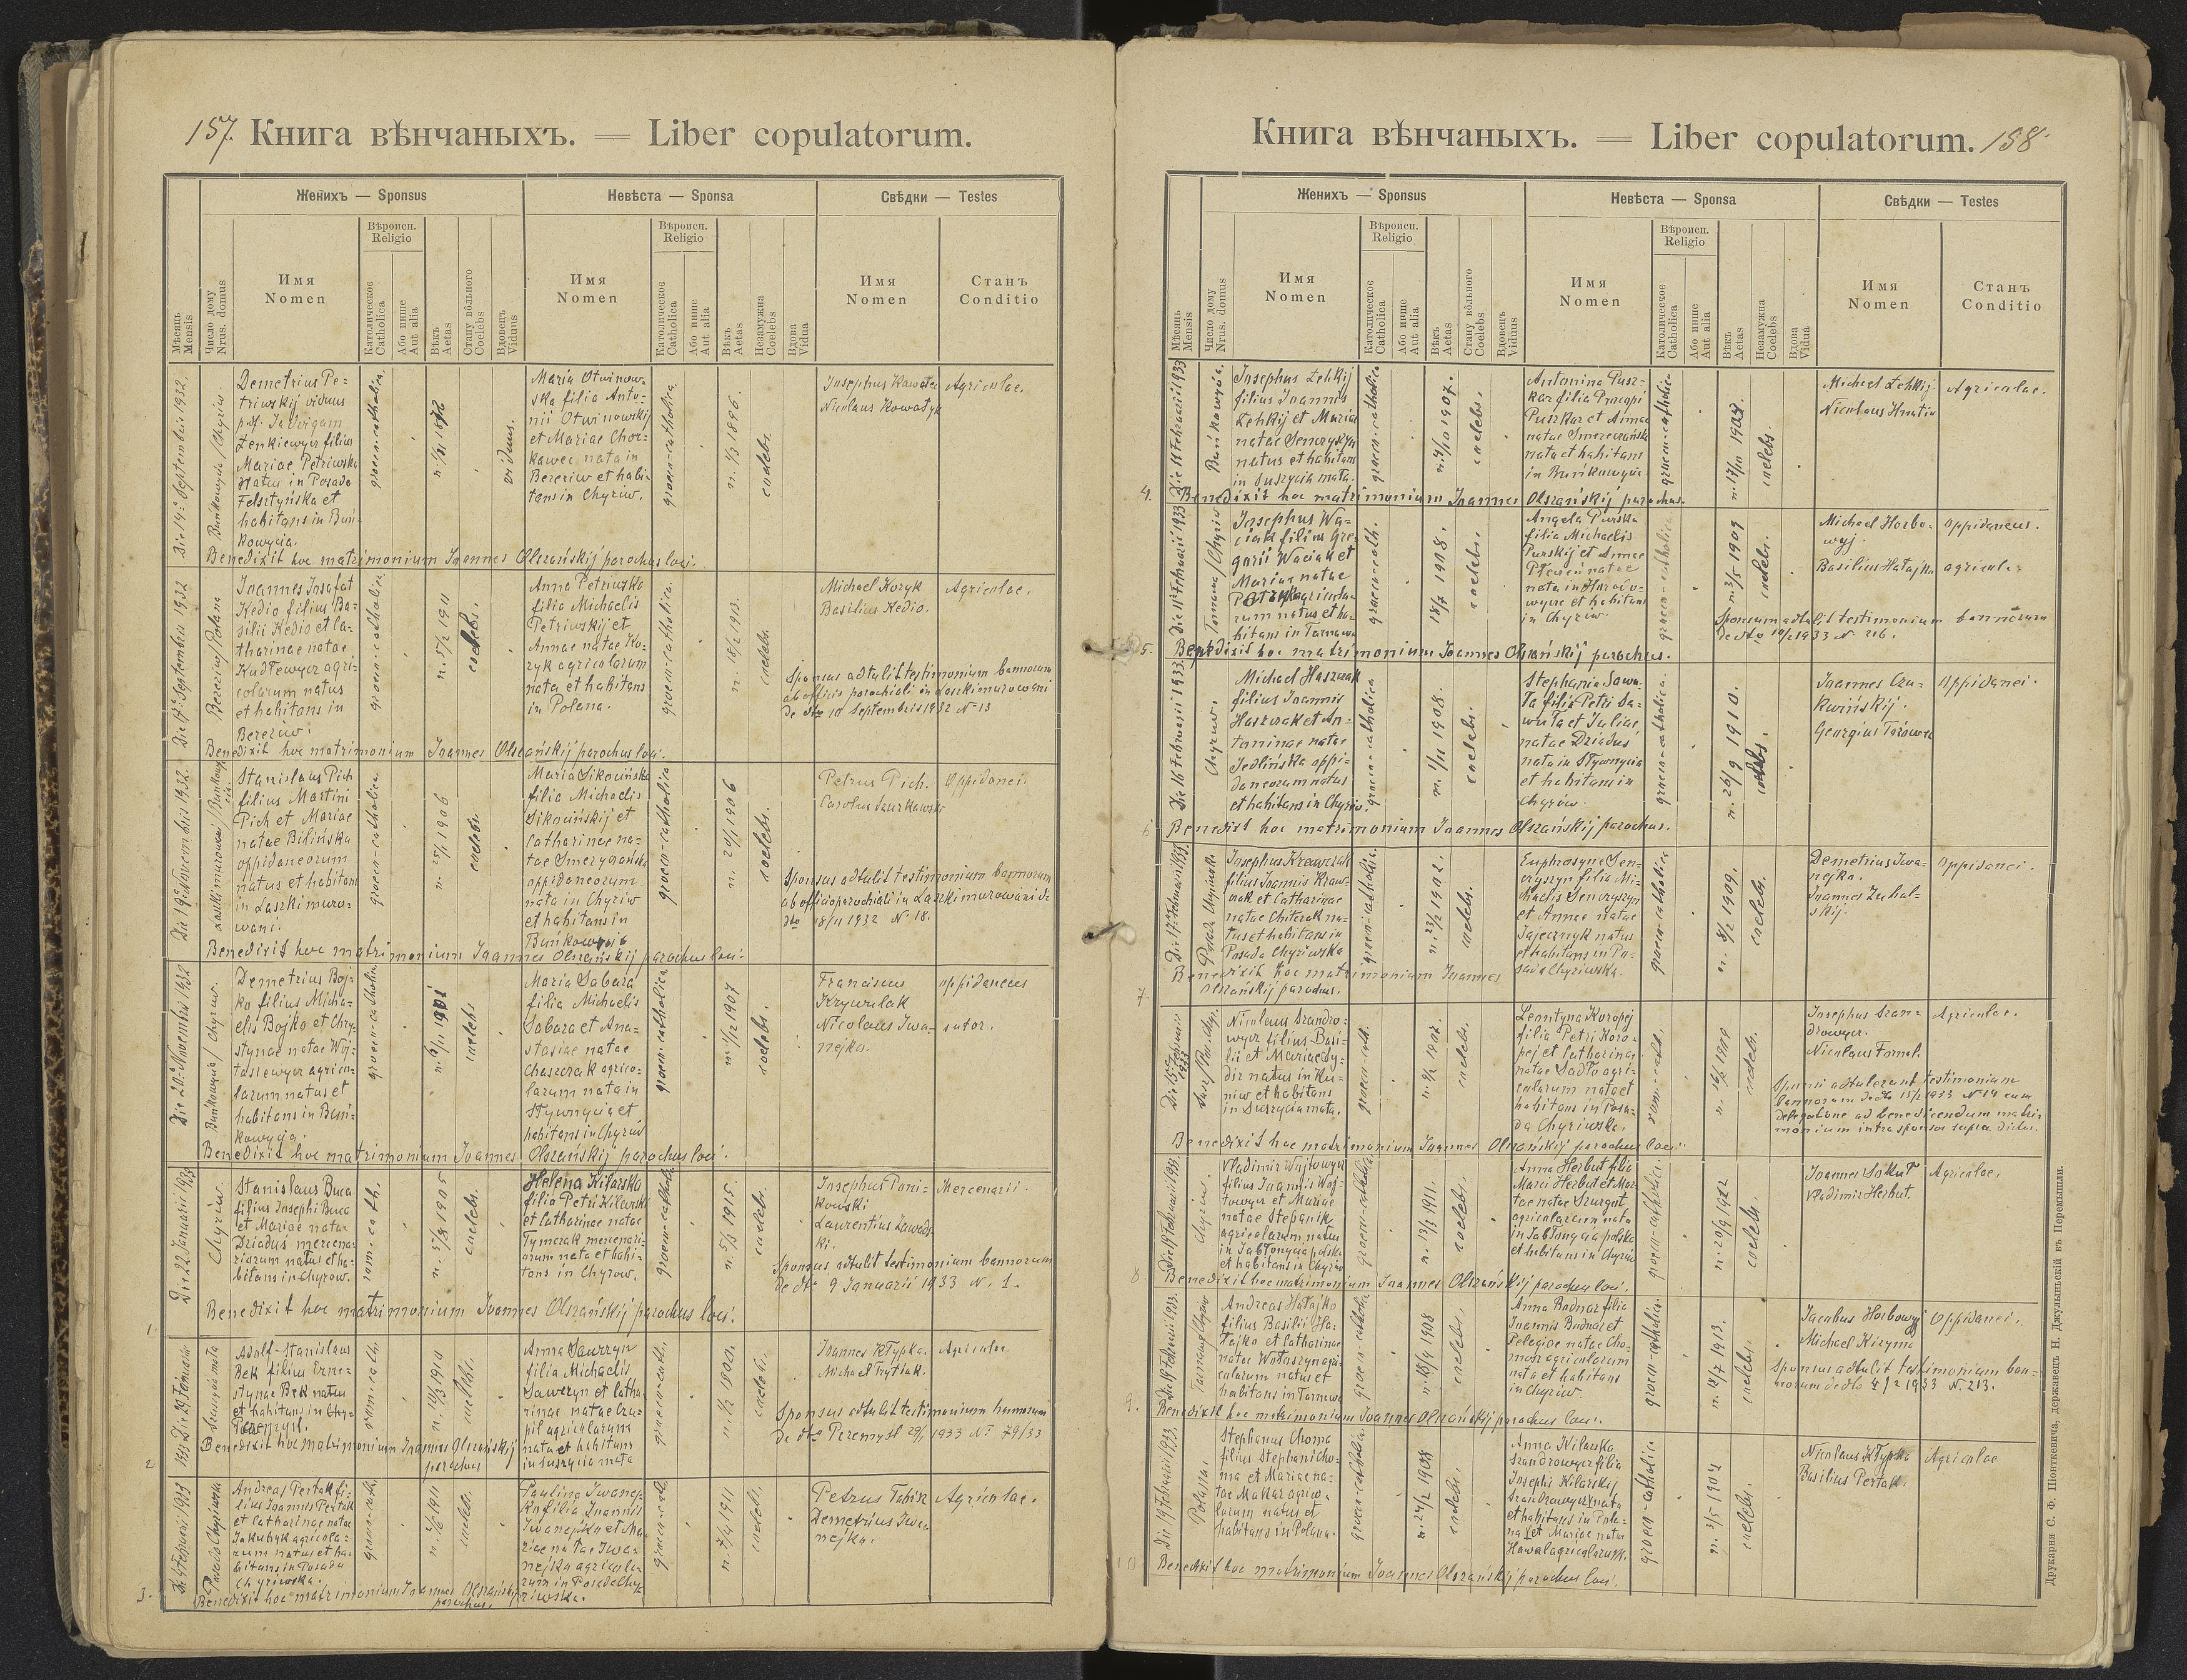 157.
Книга вѣнчаныхъ. — Liber copulatorum.
Женихъ — Sponsus
Невѣста — Sponsa
Свѣдки — Testes
Мѣсяць
Mensis
Число дому
Nrus. domus
Имя
Nomen
Вѣроисп.
Religio
Католическое
Catholica
Або инше
Aut alia
Вѣкъ
Aetas
Стану вôльного
Coelebs
Вдовець
Viduus
Имя
Nomen
Вѣроисп.
Religio
Католическое
Catholica
Або инше
Aut alia
Вѣкъ
Aetas
Незамужна
Coelebs
Вдова
Vidua
Имя
Nomen
Станъ
Conditio
Die 14ª Septembris 1932.
Buńkowycia / Chyriw.
Demetrius Pe-
triwskij viduus
Zenkiewycz filius
Mariae Petriwska
natus in Posada
Felsztyńska et
habitans in Buń-
kowycia.
graeco-catholica.
viduus.
Maria Otwinow-
ska filia Anto-
nii Otwinowskij
et Mariae Chor-
kawec, nata in
Bereziw et habi-
tans in Chyriw.
graeco-catholica.
n. 1/3 1896.
coelebs.
Josephus Kowałec
Nicolaus Kowałyk
Agricolae.
Benedixit hoc matrimonium Joannes Olszańskij parochus loci.
Die 17ª Septembris 1932
Bereziw/Polana
Joannes Josafat
Kedio filius Ba-
silii Kedio et Ca-
tharinae natae
Kudłewycz agri-
colarum natus
et habitans in
Bereziw.
graeco-catholica
n. 5/2 1911
coelebs.
Anna Petriwska
filia Michaelis
Petriwskij et
Annae natae Ko-
zyk agricolarum
nata et habitans
in Polana.
graeco-catholica.
n. 18/2 1913.
coelebs
Michael Kozyk
Basilius Kedio.
Agricolae.
Sponsus adtulit testimonium bannorum
ab officio parochiali in Laszki murowani
de dto 10 Septembris 1932 № 13
Benedixit hoc matrimonium Joannes Olszańskij parochus loci.
Die 19ª Novembris 1932.
Laszki murowani / Buńkowycia.
Stanislaus Pich
filius Martini
Pich et Mariae
natae Bilińska
oppidaneorum
natus et habitans
in Laszki muro-
wani.
graeco-catholica.
n. 25/1 1906
coelebs
Maria Sikocińska
filia Michaelis
Sikocińskij et
Catharinae na-
tae Smerczańska
oppidaneorum
nata in Chyriw
et habitans in
Buńkowycia
graeco-catholica
n. 20/1 1906
coelebs.
Petrus Pich.
Carolus Szurkawski
Oppidanei.
Sponsus adtulit testimonium bannorum
ab officio parochiali in Laszki murowani de
dto 18/11 1932 № 18.
Benedixit hoc matrimonium Joannes Olszańskij parochus loci.
Die 20ª Novembris 1932
Buńkowycia / Chyriw.
Demetrius Boj-
ko filius Micha-
elis Bojko et Chry-
stynae natae Woj-
tasiewycz agrico-
larum natus et
habitans in Buń-
kowycia.
graeco-catholica
coelebs
Maria Sabara
filia Michaelis
Sabara et Ana-
stasiae natae
Chaszczak agrico-
larum nata in
Stywnycia et
habitans in Chyriw
graeco-catholica
n. 1/12 1907
coelebs.
Franciscus
Krywulak
Nicolaus Iwa-
nejko.
oppidaneus
sutor.
Benedixit hoc matrimonium Joannes Olszańskij parochus loci.
Die 22 Januarii 1933
Chyriw.
Stanislaus Buca
filius Josephi Buca
et Mariae natae
Dziaduś mercena-
riorum natus et ha-
bitans in Chyrow.
rom. cath.
n. 5/8 1905
coelebs.
Helena Kilarska
filia Petri Kilarski
et Catharinae natae
Tymczak mercenari-
orum nata et habi-
tans in Chyrow.
graeco-cathol.
n. 5/3 1915.
coelebs.
Josephus Poni-
kowski
Laurentius Zawadz-
ki.
Mercenarii.
Sponsus adtulit testimonium bannorum
de dto 9 Januarii 1933 N. 1.
1.
Benedixit hoc matrimonium Joannes Olszańskij parochus loci.
Adolf-Stanislaus
Bek filius Erne-
stynae Bek natus
et habitans in
Peremysl.
rom. cath.
n. 14/3 1910
coelebs.
Anna Sawczyn
filia Michaelis
Sawczyn et Catha-
rinae natae Cza-
pil agricolarum
nata et habitans
in Suszycia mała
graeco-cath.
coelebs.
Joannes Kłypka.
Michael Frytiak.
Agricolae
Sponsus adtulit testimonium bannorum
de dto Peremysl 29/1 1933 № 79/33
2
Benedixit hoc matrimonium Joannes Olszańskij
parochus
Die 5 Februarii 1933
Posada Chyriwska
Andreas Pertak fi-
lius Joannis Pertak
et Catharinae natae
Jakubyk agricola-
rum natus et ha-
bitans in Posada
Chyriwska.
graeco-cath.
coelebs.
Paulina Iwanej-
ko filia Joannis
Iwanejko et Ma-
riae natae Iwa-
nejko agricola-
rum in Posada Chy-
riwska.
graeco-cath.
n. 7/4 1911
coelebs.
Petrus Fabisz
Demetrius Iwa-
nejko.
Agricolae.
3.
Benedixit hoc matrimonium Joannes Olszańskij
parochus.
Книга вѣнчаныхъ. — Liber copulatorum.
158
Женихъ — Sponsus
Невѣста — Sponsa
Свѣдки — Testes
Мѣсяць
Mensis
Число дому
Nrus. domus
Имя
Nomen
Вѣроисп.
Religio
Католическое
Catholica
Або инше
Aut alia
Вѣкъ
Aetas
Стану вôльного
Coelebs
Вдовець
Viduus
Имя
Nomen
Вѣроисп.
Religio
Католическое
Catholica
Або инше
Aut alia
Вѣкъ
Aetas
Незамужна
Coelebs
Вдова
Vidua
Имя
Nomen
Станъ
Conditio
Buńkowycia.
Josephus Lehkij
filius Joannis
Lehkij et Mariae
natae Senczyszyn
natus et habitans
in Suszycia mała.
graeco-catholica
coelebs.
Antonina Pusz-
kar filia Procopi
Puszkar et Annae
natae Smereczańska
nata et habitans
in Buńkowycia
graeco-catholica
coelebs.
Michael Lehkij
Nicolaus Hnatiw
Agricolae.
4.
Benedixit hoc matrimonium Joannes Olszańskij parochus.
Die 11ª Februarii 1933
Tarnawa / Chyriw
Josephus Wa-
ciak filius Gre-
gorii Waciak et
Mariae natae
Petryk agricola-
rum natus et ha-
bitans in Tarnawa
graeco-cath.
18/7 1908.
coelebs.
Angela Purska
filia Michaelis
Purskij et Annae
Płeceń natae
nata in Horodo-
wycze et habitans
in Chyriw.
graeco-catholica
n. 3/5 1909
coelebs.
Michael Horbo-
wyj.
Basilius Hałajko
Oppidaneus.
agricola.
Sponsus adtulit testimonium bannorum
de dto 10/2 1933 № 216.
5.
Benedixit hoc matrimonium Joannes Olszańskij parochus.
Die 16 Februarii 1933.
Chyriw.
Michael Haszczak
filius Joannis
Haszczak et An-
toninae natae
Jedlińska oppi-
daneorum natus
et habitans in Chyriw.
graeco-catholica
n. 1/11 1908.
coelebs.
Stephania Sawu-
la filia Petri Sa-
wuła et Juliae
natae Dziaduś
nata in Stywnycia
et habitans in
Chyriw.
graeco-catholica.
n. 26/9 1910.
coelebs.
Joannes Czu-
kwińskij.
Georgius Tarawa
Oppidanei.
6.
Benedixit hoc matrimonium Joannes Olszańskij parochus.
Posada Chyriwska
Josephus Krawczak
filius Joannis Kraw-
czak et Catharinae
natae Chiterak na-
tus et habitans in
Posada Chyriwska
graeco-catholica.
n. 23/2 1902.
coelebs.
Euphrosyna Sen-
czyszyn filia Mi-
chaelis Senczyszyn
et Annae natae
Jajecznyk natus
et habitans in Po-
sada Chyriwska.
graeco-catholica
n. 8/2 1909.
coelebs.
Demetrius Iwa-
nejko.
Joannes Zubal-
skij.
Oppidanei.
7.
Benedixit hoc matrimonium Joannes
Olszańskij parochus.
Nicolaus Szandro-
wycz filius Basi-
lii et Mariae Dy-
dir natus in Ku-
niw et habitans
in Suszycia mała.
graeco-cath.
coelebs.
Leontyna Koropej
filia Petri Koro-
pej et Catharinae
natae Sadło agri-
colarum nata et
habitans in Posa-
da Chyriwska.
rom-cath.
coelebs.
Josephus Szan-
drowycz.
Nicolaus Fornal.
Agricolae.
Sponsi adtulerunt testimonium
bannorum de dto 15/2 1933 № 14 cum
delegatione ad benedicendum matri-
monium intra sponsos supra dictos.
Benedixit hoc matrimonium Joannes Olszańskij parochus loci.
Die 19 Februarii 1933.
Chyriw.
Vladimir Wojtowycz
filius Joannis Woj-
towycz et Mariae
natae Stepanik
agricolarum natus
in Jabłonycia polska
et habitans in Chyriw
graeco-catholica
n. 13/3 1911.
coelebs.
Anna Herbut filia
Marci Herbut et Mar-
tae natae Szurgot
agricolarum nata
in Jabłonycia polska
et habitans in Chyriw
graeco-catholica.
n. 20/9 1912
coelebs.
Joannes Sokuł
Vladimir Herbut.
Agricolae.
8.
Benedixit hoc matrimonium Joannes Olszańskij parochus loci.
Die 19 Februarii 1933.
Tarnawa/Chyriw
Andreas Hałajko
filius Basilii Ha-
łajko et Catharinae
natae Wołoszyn agri-
colarum natus et
habitans in Tarnawa
graeco-catholica
n. 18/4 1908
coelebs.
Anna Bodnar filia
Joannis Bodnar et
Pelagiae natae Cho-
mosz agricolarum
nata et habitans
in Chyriw.
graeco-catholica.
n. 12/7 1913.
coelebs
Jacobus Horbowyj
Michael Kizyma
Oppidanei.
Sponsus adtulit testimonium ban-
norum de dto 4/2 1933 № 213.
9.
Benedixit hoc matrimonium Joannes Olszańskij parochus loci.
Die 19 Februarii 1933.
Polana.
Stephanus Choma
filius Stephani Cho-
ma et Mariae na-
tae Makar agrico-
larum natus et
habitans in Polana.
graeco-catholica
n. 24/2 1908
coelebs.
Anna Kilarska
Szandrowycz filia
Josephi Kilarskij
Szandrowycz nata
et habitans in Pola-
na et Mariae natae
Hawal agricolarum.
graeco-catholica
coelebs.
Nicolaus Kłypka
Basilius Pertak.
Agricolae
10
Benedixit hoc matrimonium Joannes Olszańskij parochus loci.
Друкарня С. Ф. Піонткевича, державець Н. Джулыньскій въ Перемышли.